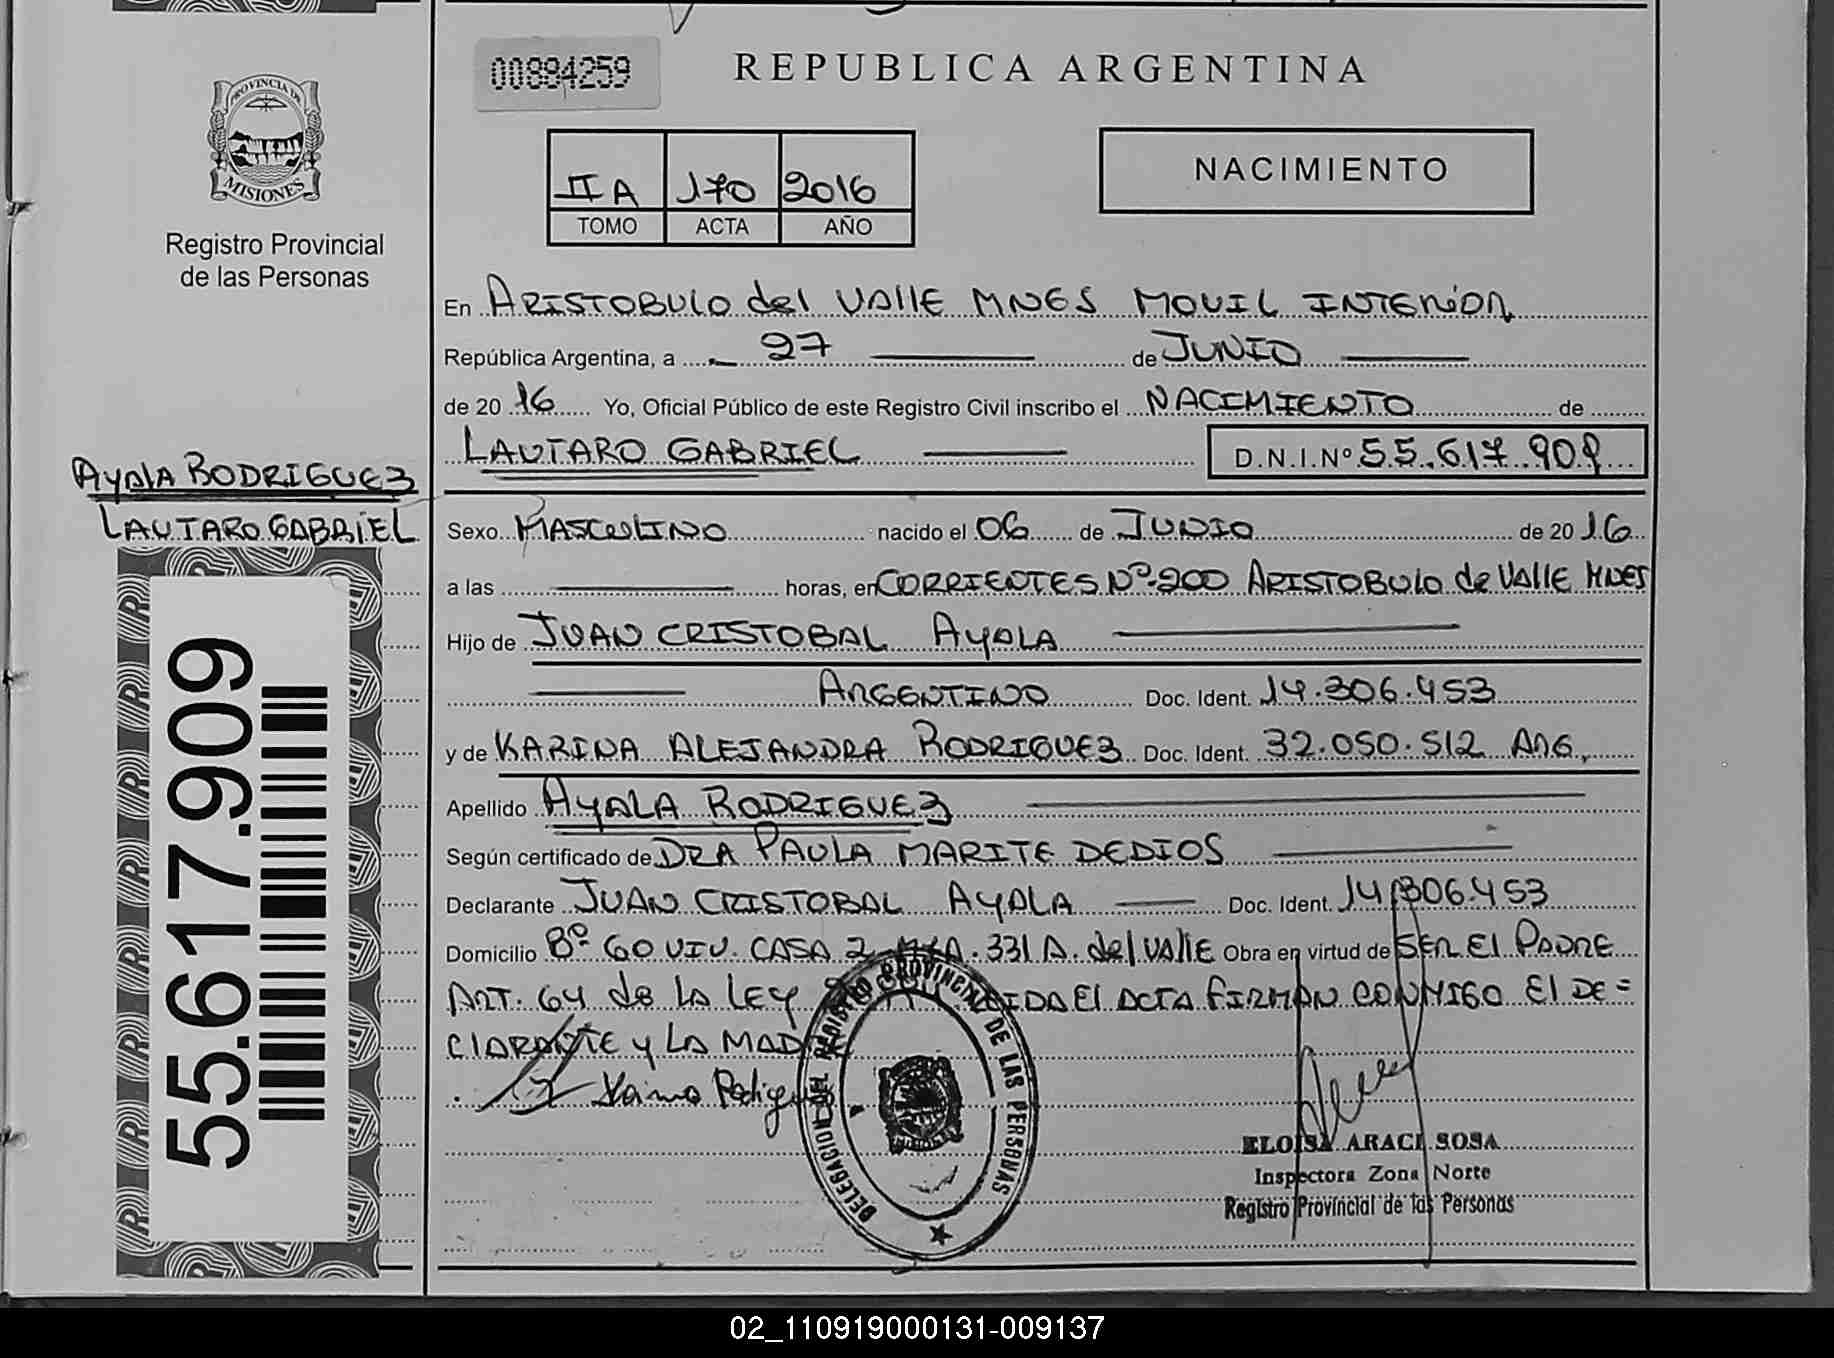 00894259
REPUBLICA ARGENTINA
PROVINCIA DE
MISIONES
Registro Provincial
de las Personas
IIA 170 2016
TOMO ACTA AÑO
NACIMIENTO
En ARISTOBULO del VAllE MNES MOVIL INTERIOR
República Argentina, a 27 de JUNIO
de 20 16 Yo, Oficial Público de este Registro Civil inscribo el NACIMIENTO de
LAUTARO GABRIEL D.N.I.Nº 55.617.909
AYALA RODRIGUEZ
LAUTARO GABRIEL
Sexo MASCULINO nacido el 06 de JUNIO de 20 16
a las horas, en CORRIENTES Nº 200 ARISTOBULO de VAllE MNES
Hijo de JUAN CRISTOBAL AYALA
ARGENTINO Doc. Ident. 14.306.453
y de KARINA ALEJANDRA RODRIGUEZ Doc. Ident. 32.050.512 ARG.
Apellido AYALA RODRIGUEZ
Según certificado de DRA PAULA MARITE DEDIOS
Declarante JUAN CRISTOBAL AYALA Doc. Ident. 14.306.453
Domicilio Bº 60 VIV. CASA 2 MZA. 331 A. del VAllE Obra en virtud de SER El PADRE
ART. 64 de LA LEY El ACTA FIRMAN CONMIGO El DE=
ClARANTE y LA MADRE
Karina Rodriguez
DELEGACION DEL REGISTRO PROVINCIAL DE LAS PERSONAS
ELOISA ARACI SOSA
Inspectora Zona Norte
Registro Provincial de las Personas
55.617.909
02_110919000131-009137